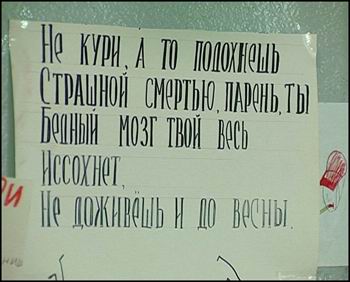 Не кури, а то подохнешь
Страшной смертью, парень, ты
Бедный мозг твой весь
Иссохнет,
Не доживёшь и до весны.